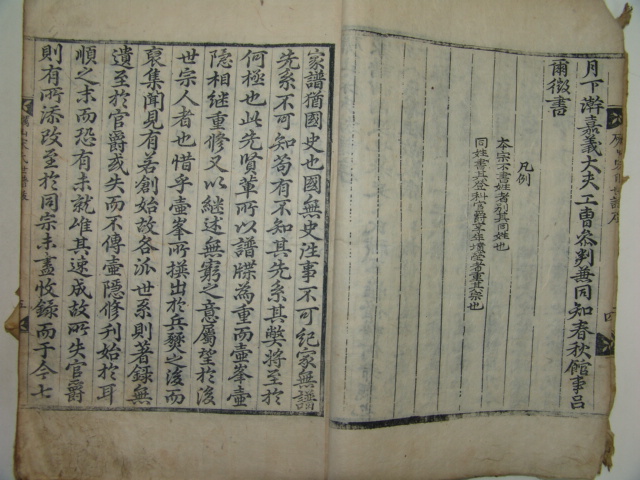 月下澣嘉義大夫工曹叅判兼同知春秋館事呂
爾徵書
凡例
本宗不書姓者別其同姓也
同姓書其登科官爵
也
四
家譜猶國史也國無史往事不可紀家無譜
先系不可知苟有不知其先系其獘將至於
何極也此先賢軰所以譜牒為重而壺峯壺
隠相継重修又以継述無窮之意屬望於後
世宗人者也惜乎壺峯所撰出於兵燹之後而
裒集聞見有若創始故各派世系則著録無
遺至於官爵或失而不傳壺隠修利始於耳
順之末而恐有未就雖其速成故所失官爵
則有所添改至於同宗未盡收録而于今七